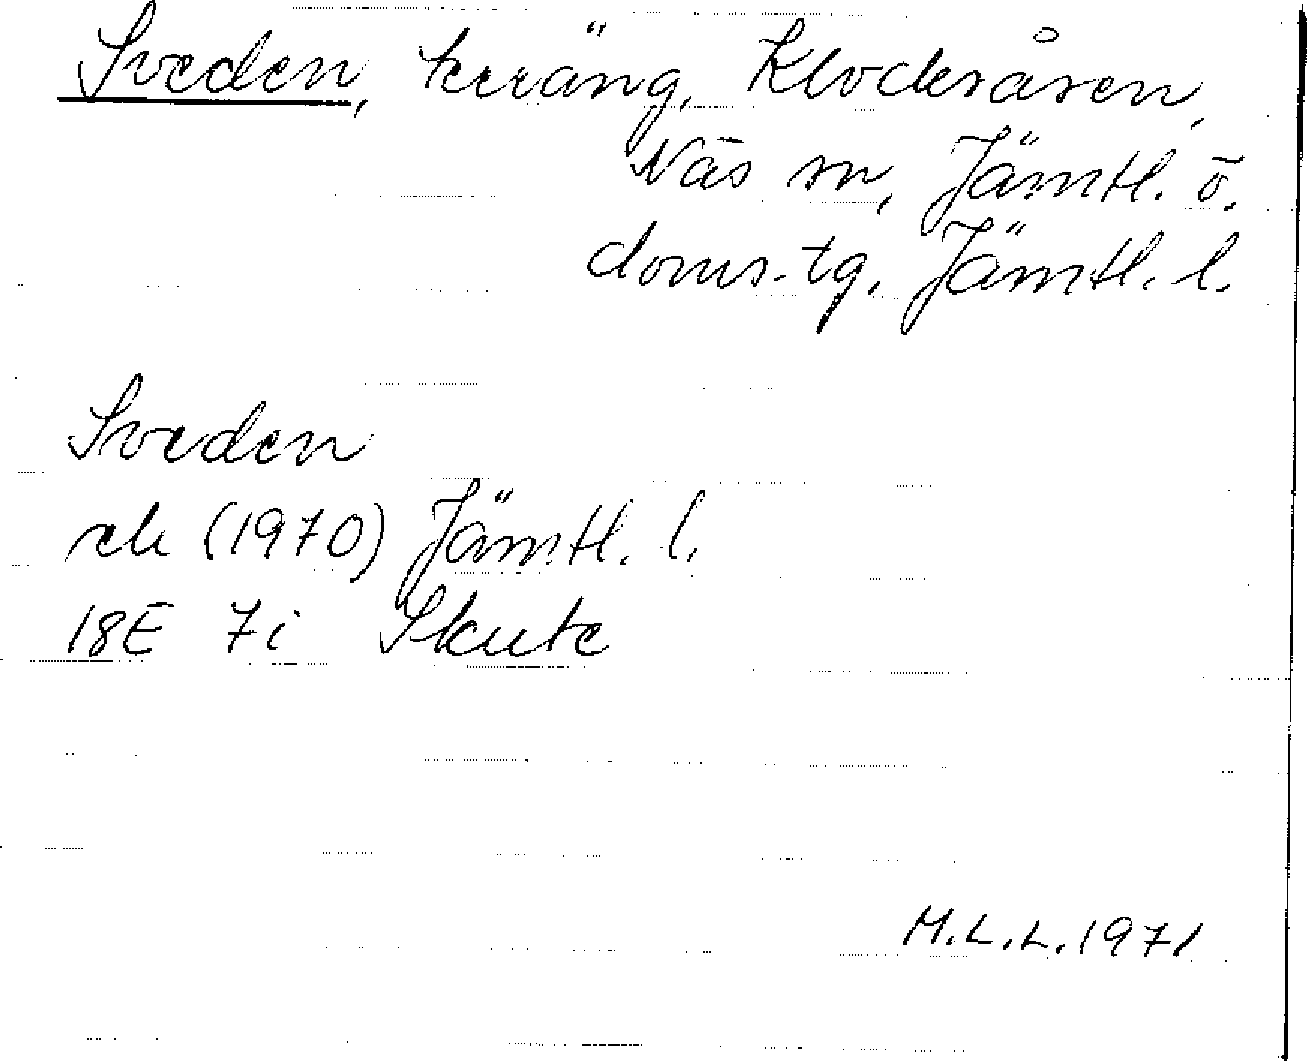 Sveden, terräng, Klocksåsen,
Näs sn, Jämtl. ö.
doms.-tg, Jämtl. l.
Sveden
ek (1970) Jämtl. l.
18E 7i Skute
M.L.L. 1971